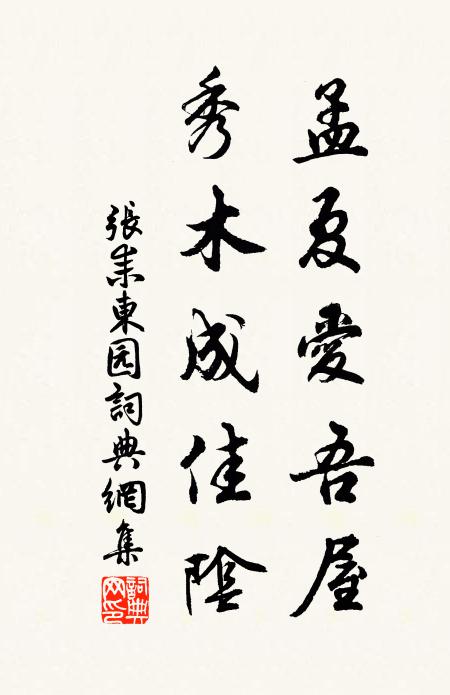 孟夏愛吾屋
秀木成佳陰
張耒東园詞典網集
詞典
网印